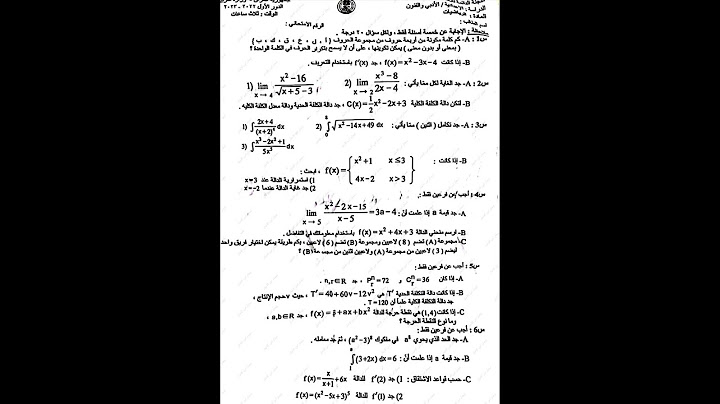 الدراسة : الإعدادية / الأدبي والفنون
المادة : الرياضيات
الدور الأول ٢٠٢٢ - ٢٠٢٣
الوقت : ثلاث ساعات
الرقم الامتحاني :
ملاحظة : الإجابة عن خمسة أسئلة فقط ، ولكل سؤال ٢٠ درجة .
س1 : A- كم كلمة مكونة من أربعة حروف من مجموعة الحروف
( بمعنى أو بدون معنى ) يمكن تكوينها ، على أن لا يسمح بتكرار الحرف في الكلمة الواحدة ؟
B- إذا كانت f(x) = x² −3x −4 ، جد f'(x) باستخدام التعريف .
س2 : A- جد الغاية لكل مما يأتي : 1) lim x→4 (x² −16)/(√(x+5) −3) 2) lim x→2 (x³ −8)/(2x −4)
B- لتكن دالة الكلفة الكلية C(x)=1/2 x² −2x +3 ، جد دالة الكلفة الحدية ودالة معدل الكلفة الكلية .
س3 : A- جد تكامل ( اثنين ) مما يأتي : 2) √(x² −14x+49) dx
1) ∫ (2x+4)/(x+2) dx
3) ∫ (x³ −2x² +1)/(5x²) dx
B- إذا كانت : f(x) = { x² +1 x ≤ 3
4x −2 x > 3 } ، ابحث :
1) استمرارية الدالة عند x = 3
2) جد غاية الدالة عندما x = −2
س4 : أجب عن فرعين فقط :
A- جد قيمة a إذا علمت أن : lim x→5 (x² −2x −15)/(x−5) = 3a −4
B- ارسم منحني الدالة f(x) = x² +4x +3 باستخدام معلوماتك في التفاضل .
C- مجموعة (A) تضم ( 8 ) لاعبين ومجموعة (B) تضم ( 6 ) لاعبين ، بكم طريقة يمكن اختيار فريق واحد
ليضم ( 3 ) لاعبين من مجموعة (A) ولاعبين اثنين من مجموعة (B) ؟
س5 : أجب عن فرعين فقط :
A- إذا كان C n r = 36 و P n r = 72 ، جد n,r∈R .
B- إذا كانت دالة التكلفة الحدية T' هي T' = 40 + 60v −12v² ، حيث v حجم الإنتاج ،
جد دالة التكلفة الكلية علماً أن T = 120 .
C- إذا كانت (1,4) هي نقطة حرجة للدالة f(x) = + ax + bx² ، جد a,b∈R ،
وما نوع النقطة الحرجة ؟
س6 : أجب عن فرعين فقط :
A- جد الحد الذي يحوي a⁸ في مفكوك (a² −3) ، ثم جد معامله .
B- جد قيمة a إذا علمت أن : ∫ (3+2x) dx = 6
C- حسب قواعد الاشتقاق : 1) جد f'(2) للدالة f(x) = x/(x+1) + 6x
2) جد f'(1) للدالة f(x) = (x² −5x +3)⁵